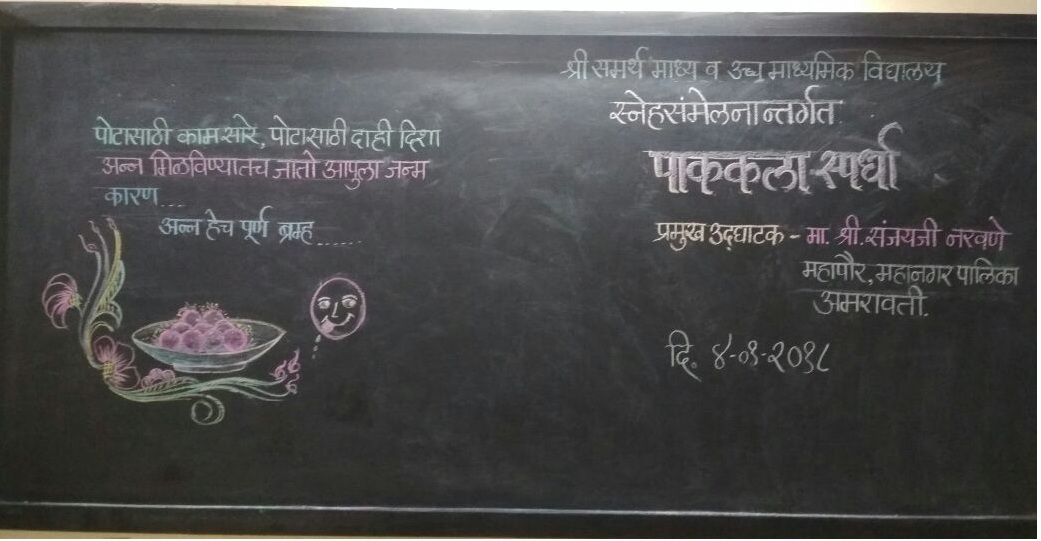 पोटासाठी काम सारे, पोटासाठी दाही दिशा
अन्न मिळविण्यातच जातो आपुला जन्म
कारण....
अन्न हेच पूर्ण ब्रम्ह......
श्री समर्थ माध्य व उच्च माध्यमिक विद्यालय
स्नेहसंमेलनान्तर्गत
पाककला स्पर्धा
प्रमुख उद्घाटक - मा. श्री. संजयजी नरवणे
महापौर, महानगर पालिका
अमरावती.
दि. ४-०१-२०१८